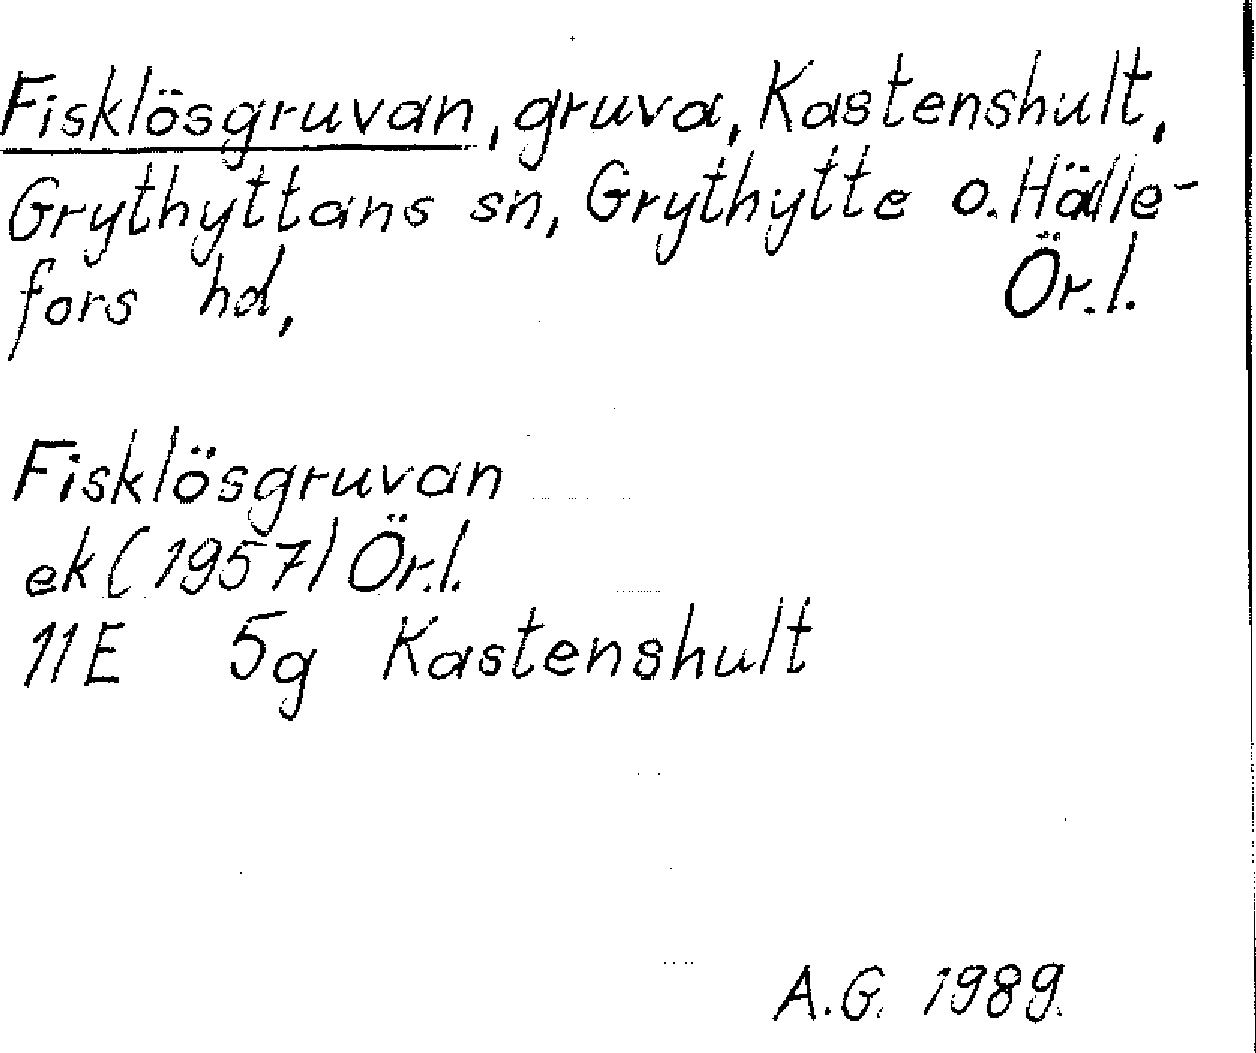 Fisklösgruvan, gruva, Kastenshult,
Grythyttans sn, Grythytte o. Hälle-
fors hd, Ör.l.
Fisklösgruvan
ek (1957) Ör.l.
11E 5g Kastenshult
A.G. 1989.